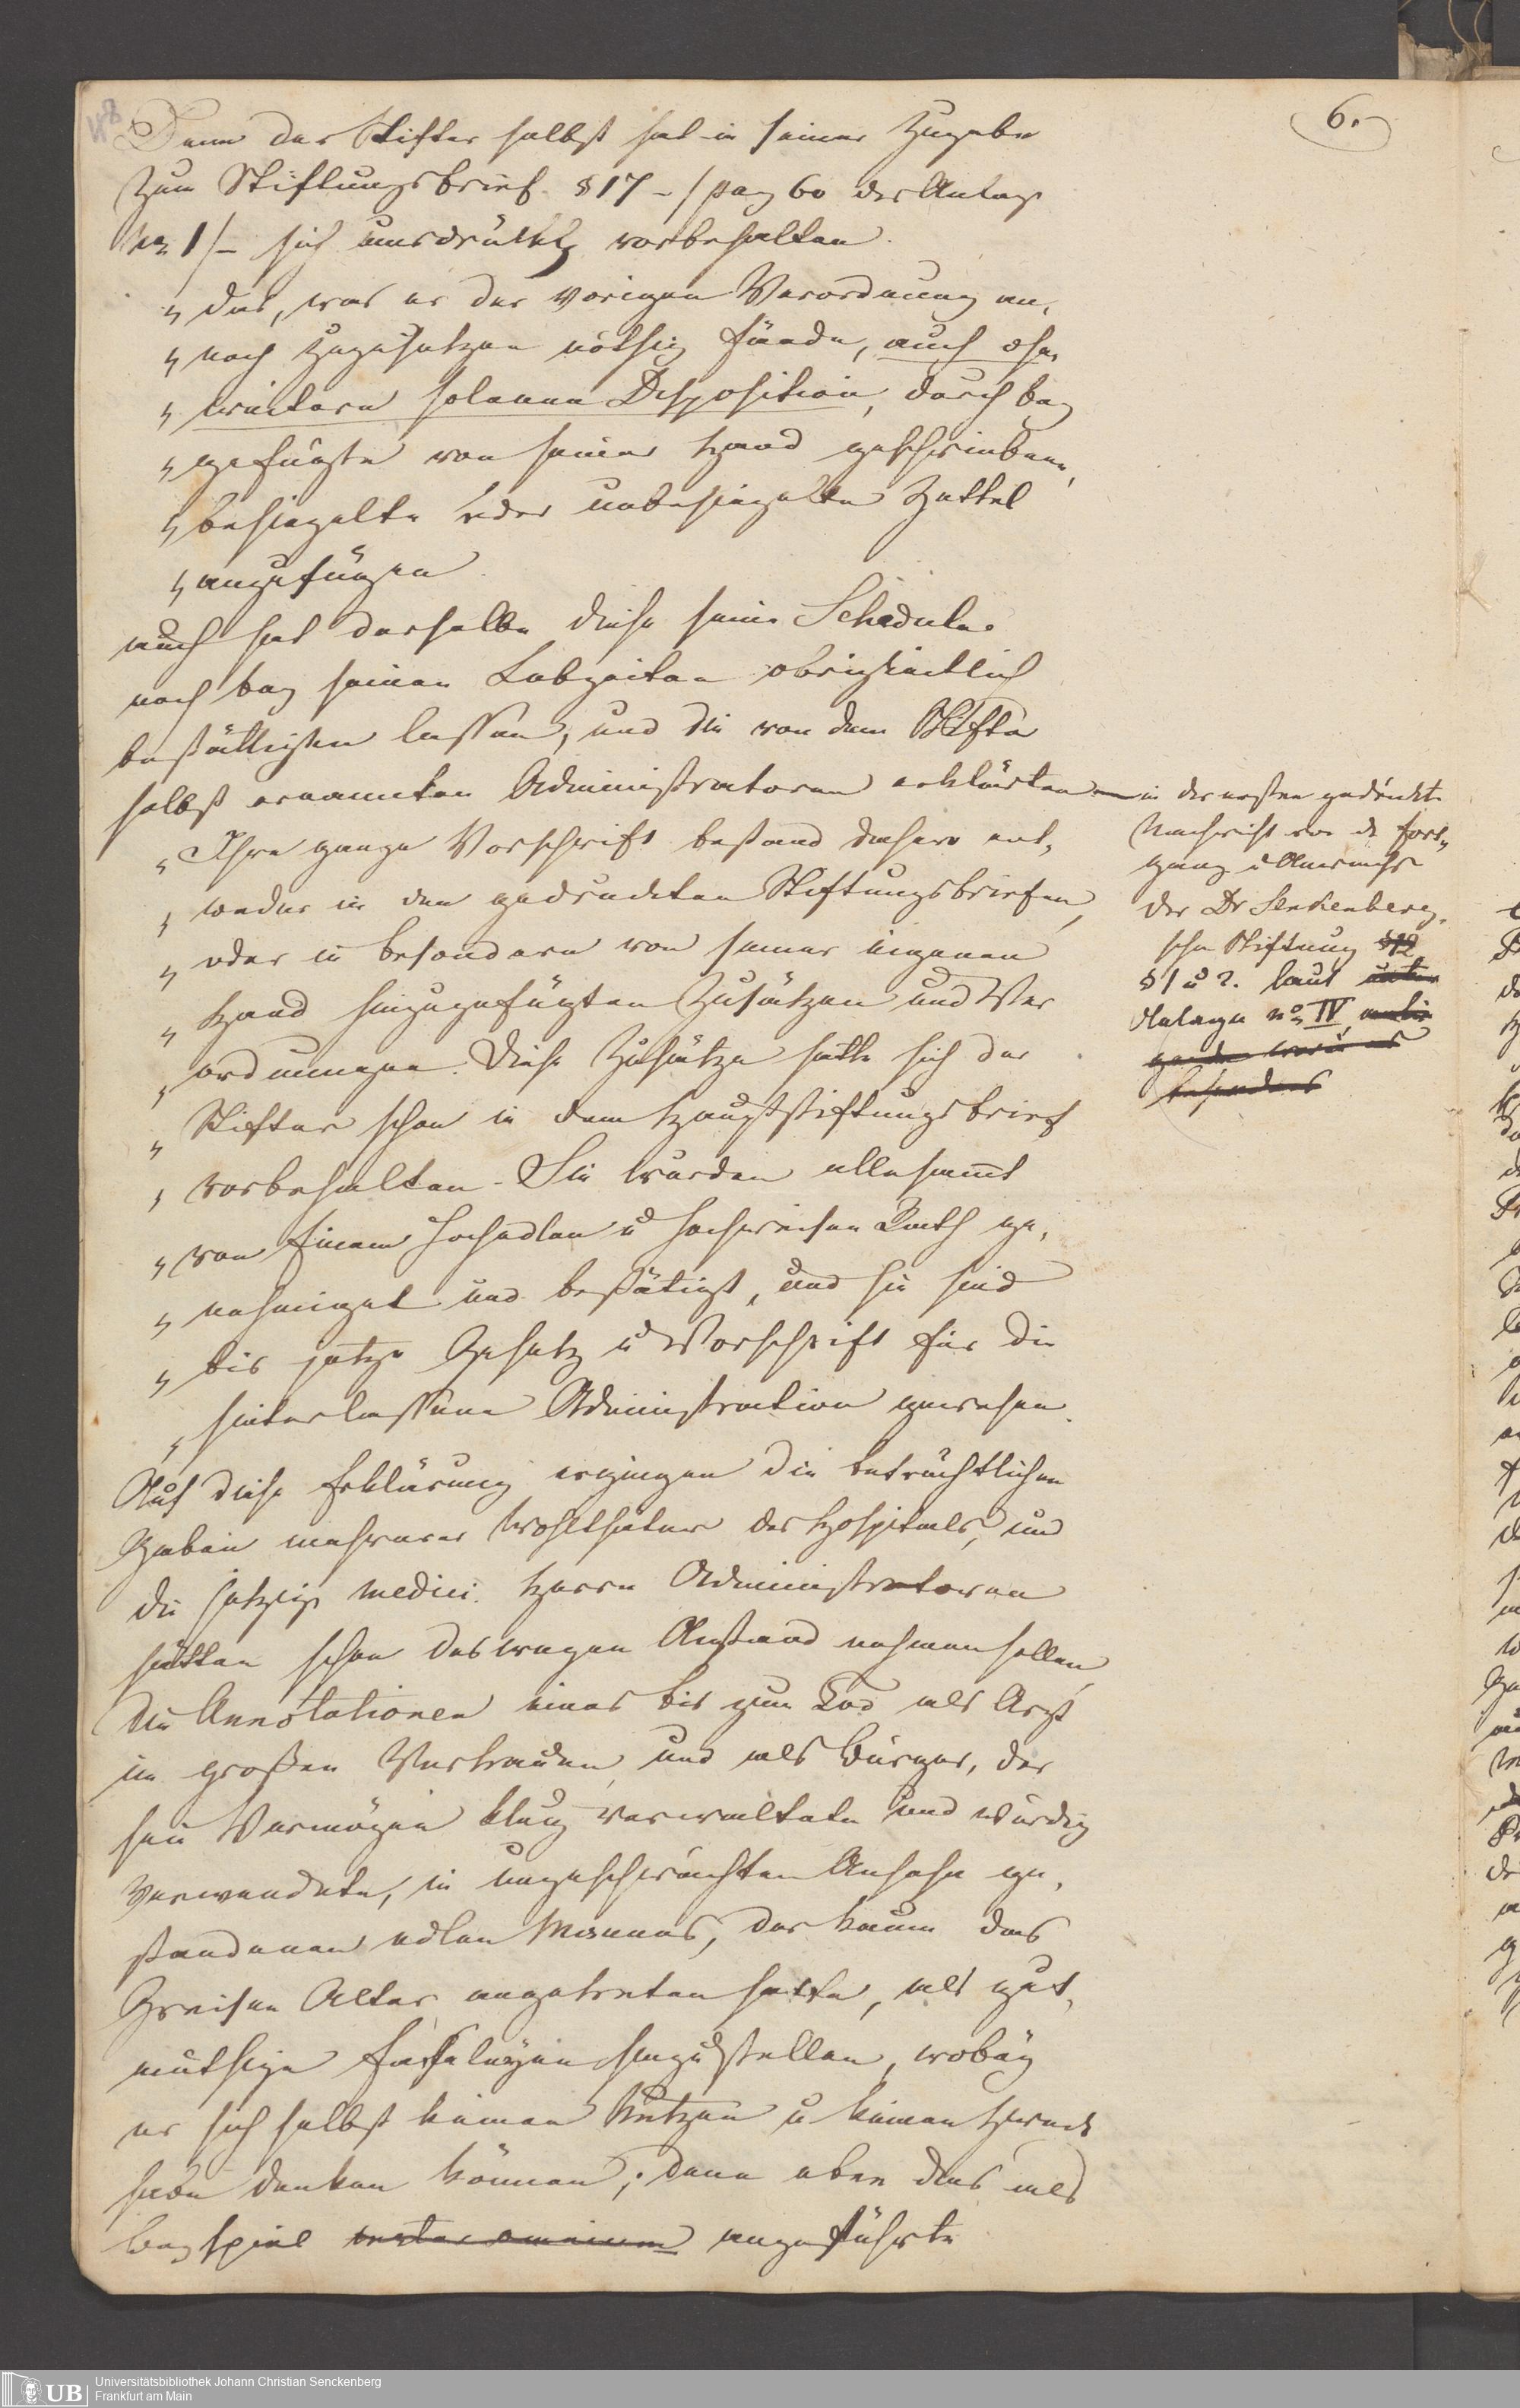 6.
Denn der Stifter selbst hat in seiner Zugabe
zum Stiftungsbrief § 17 - / pag 60 der Anlage
No 1 /- sich ausdrücklich vorbehalten.
„ das, was er der vorigen Verordnung an,
„ noch zuzusetzen nöthig fände, auch ohne
„ weitere solenne Disposition, durch bey
„ gefügte von seiner Hand geschriebene,
„ besiegelte oder unbesiegelte Zettel
„ anzufügen.
auch hat derselbe diese seine Schedulas
noch bey seinen Lebzeiten obrigkeitlich
bestättigen lassen, und die von dem Stifter
selbst ernannten Administratoren erklärten
in der ersten gedruckten
Nachricht von dem Fort„
gang u Anwuchs
der Dr Senkenberg.
schen Stiftung §12
§ 1 u 2. laut
Anlage No IV
besonders
„ Ihre ganze Vorschrift bestand dahero ent,
„ weder in den gedruckten Stiftungsbriefen,
„ oder in besondern von seiner eigenen
„ Hand hinzugefügten Zusätzen und Ver
„ ordnungen. Diese Zusätze hatte sich der
„ Stifter schon in dem Hauptstiftungsbrief
„ vorbehalten. Sie wurden allesammt
„ von Einem Hochedlen u Hochweisen Rath ge,
„ nehmiget und bestätigt, und sie sind
„ bis jetzo Gesetz u Vorschrift für die
„ hinterlassene Administration gewesen.
Auf diese Erklärung ergingen die beträchtlichen
Gaben mehrerer Wohlthäter des Hospitals, und
die jetzige medici. Herrn Administratoren
hätten schon deswegen Anstand nehmen sollen,
die Annotationen eines bis zum Tod als Arzt
im großen Vertrauen, und als Bürger, der
sein Vermögen klug verwaltete und würdig
verwendete, in ungeschwächten Ansehn ge,
standenen edlen Mannes, der kaum das
Greisen Alter angetreten hatte, als gut,
müthige Faseleyen hinzustellen, wobey
er sich selbst keinen Nutzen u keinen Zweck
habe denken können; denn eben das als
Beyspiel angeführte
Universitätsbibliothek Johann Christian Senckenberg
Frankfurt am Main
UB